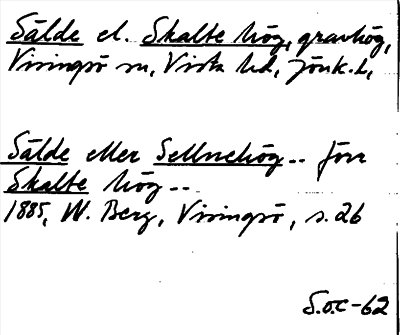 Sälde el. Skalte hög, gravhög,
Visingsö sn, Vista hd, Jönk. l.
Sälde eller Sellnehög.. förr
Skalte hög..
1885, W. Berg, Visingsö, s. 26
S.O.C-62